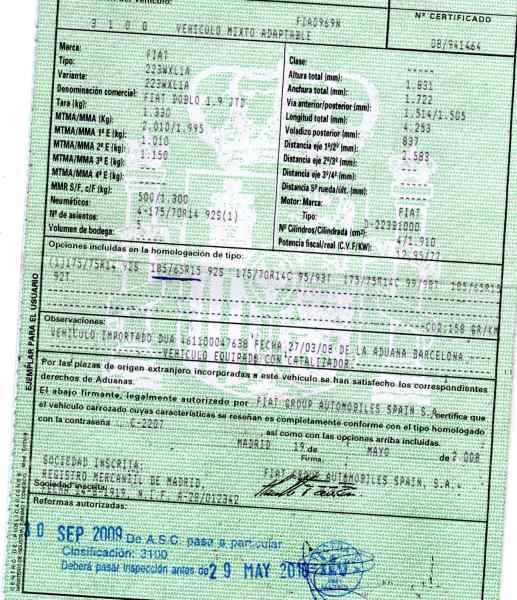 del vehículo: FIAD969N
Nº CERTIFICADO
3 1 0 0 VEHICULO MIXTO ADAPTABLE
08/941464
Marca: FIAT
Tipo: 223WXL1A
Variante: 223WXL1A
Denominación comercial: FIAT DOBLO 1.9 JTD
Tara (kg): 1.330
MTMA/MMA (Kg): 2.010/1.995
MTMA/MMA 1º E (kg): 1.010
MTMA/MMA 2º E (kg): 1.150
MTMA/MMA 3º E (kg): -----
MTMA/MMA 4º E (kg): -----
MMR S/F, c/F (kg): 500/1.300
Neumáticos: 4-175/70R14 92S(1)
Nº de asientos: 5
Volumen de bodega: -----
Clase: -----
Altura total (mm): 1.831
Anchura total (mm): 1.722
Vía anterior/posterior (mm): 1.514/1.505
Longitud total (mm): 4.253
Voladizo posterior (mm): 837
Distancia eje 1º/2º (mm): 2.583
Distancia eje 2º/3º (mm): -----
Distancia eje 3º/4º (mm): -----
Distancia 5ª rueda/últ. (mm): -----
Motor: Marca: FIAT
Tipo: D-223B1000
Nº Cilindros/Cilindrada (cm³): 4/1.910
Potencia fiscal/real (C.V.F/KW): 12,95/77
Opciones incluidas en la homologación de tipo:
(1)175/75R14 92S 185/65R15 92S 175/70R14C 95/93T 175/75R14C 99/98T 185/65R15
92T
CO2:158 GR/KM
Observaciones:
VEHICULO IMPORTADO DUA 461100047638 FECHA 27/03/08 DE LA ADUANA BARCELONA
VEHICULO EQUIPADO CON CATALIZADOR
Por las piezas de origen extranjero incorporadas a este vehículo se han satisfecho los correspondientes
derechos de Aduanas.
El abajo firmante, legalmente autorizado por FIAT GROUP AUTOMOBILES SPAIN S.A certifica que
el vehículo carrozado cuyas características se reseñan es completamente conforme con el tipo homologado
con la contraseña C-2207 así como con las opciones arriba incluidas.
MADRID 19 de MAYO de 2 008
Firma
SOCIEDAD INSCRITA: FIAT GROUP AUTOMOBILES SPAIN, S.A.
REGISTRO MERCANTIL DE MADRID,
Sociedad inscrita:
N.I.F. A-28/012342
Reformas autorizadas:
30 SEP 2009 De A.S.C. pasa a particular
Clasificación: 3100
Deberá pasar inspección antes de 29 MAY 2010
EJEMPLAR PARA EL USUARIO